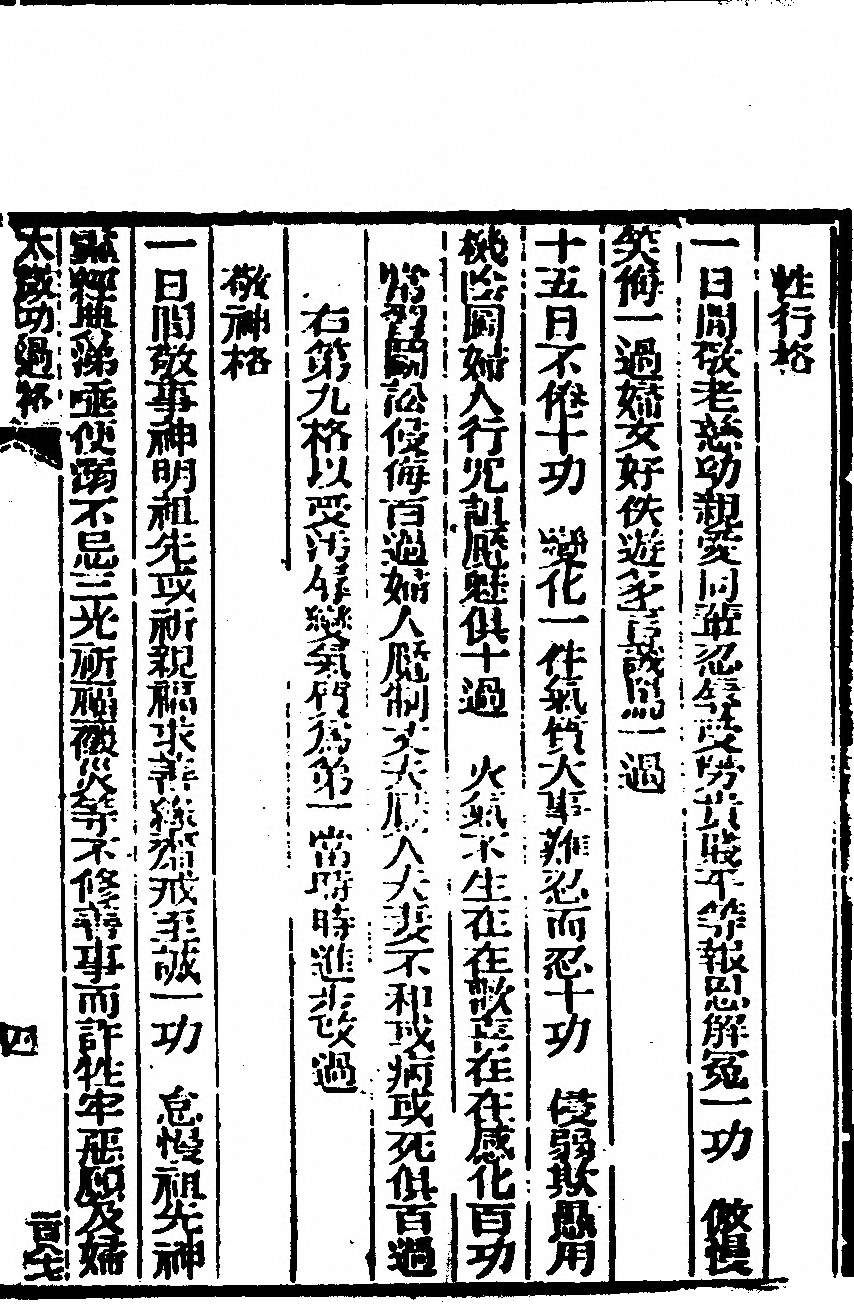 性行格
一日間敬老慈幼親愛同輩忍辱受勞貴賤平等報恩解冤一功　傲慢
笑侮一過婦女好佚遊多言誠罵一過
十五日不倦十功　變化一件氣質大事難忍而忍十功　侵弱欺愚用
機陰圖婦人行咒詛魘魅俱十過　火氣不生在在歡喜在在感化百功
常習鬬訟侵侮百過婦人魘制丈夫厭人夫妻不和或病或死俱百過
右第九格以變氣質爲第一當時時進步改過
敬神格
一日間敬事神明祖先或祈親福求壽雖齋戒至誠一功　怠慢祖先神
經典涕唾便溺不忌三光祈福禳災等不修善事而許牲牢惡願及婦
太微功過格
四
百七